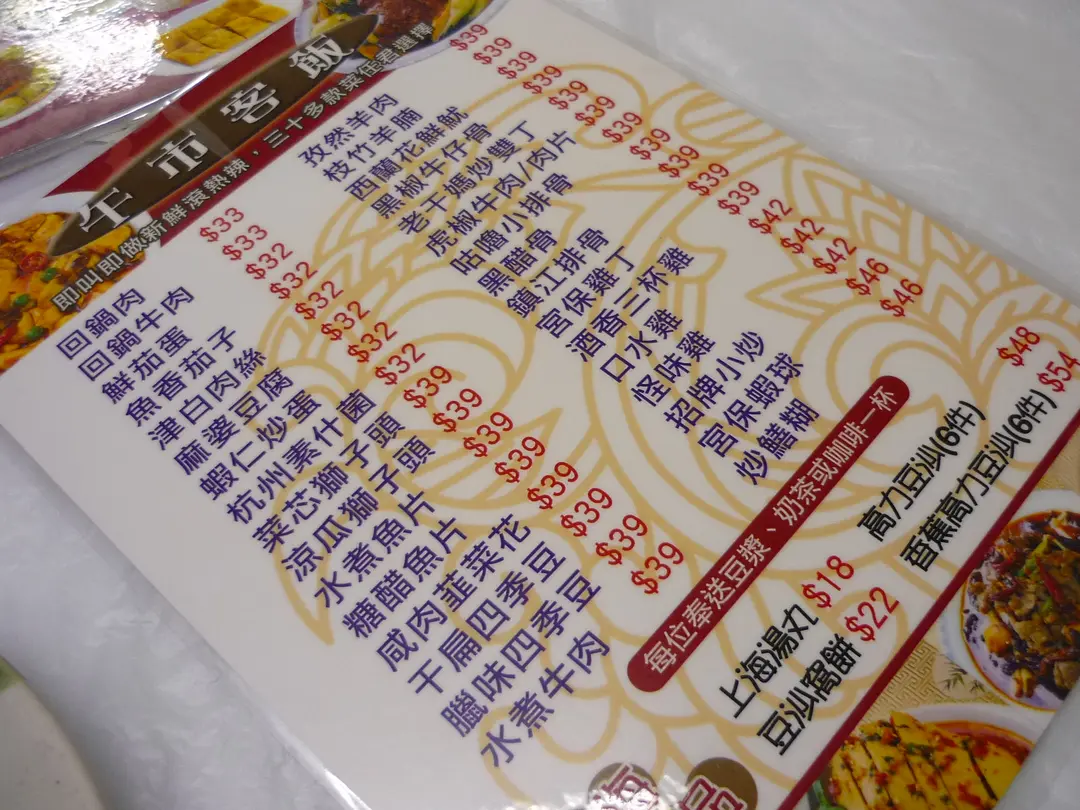 午市客飯
即叫即做新鮮滾熱辣，三十多款菜任君選擇
回鍋肉 $33
回鍋牛肉 $33
鮮茄蛋 $32
魚香茄子 $32
津白肉絲 $32
麻婆豆腐 $32
蝦仁炒蛋 $32
杭州素什菌 $32
菜芯獅子頭 $39
涼瓜獅子頭 $39
水煮魚片 $39
糖醋魚片 $39
咸肉韮菜花 $39
干扁四季豆 $39
臘味四季豆 $39
水煮牛肉 $39
孜然羊肉 $39
枝竹羊腩 $39
西蘭花鮮魷 $39
黑椒牛仔骨 $39
老干媽炒雙丁 $39
虎椒牛肉/肉片 $39
咕嚕小排骨 $39
黑醋骨 $39
鎮江排骨 $39
宮保雞丁 $39
酒香三杯雞 $39
口水雞 $42
怪味雞 $42
招牌小炒 $42
宮保蝦球 $46
炒鱔糊 $46
每位奉送豆漿、奶茶或咖啡一杯
上海湯丸 $18
豆沙窩餅 $22
高力豆沙(6件) $48
香蕉高力豆沙(6件) $54